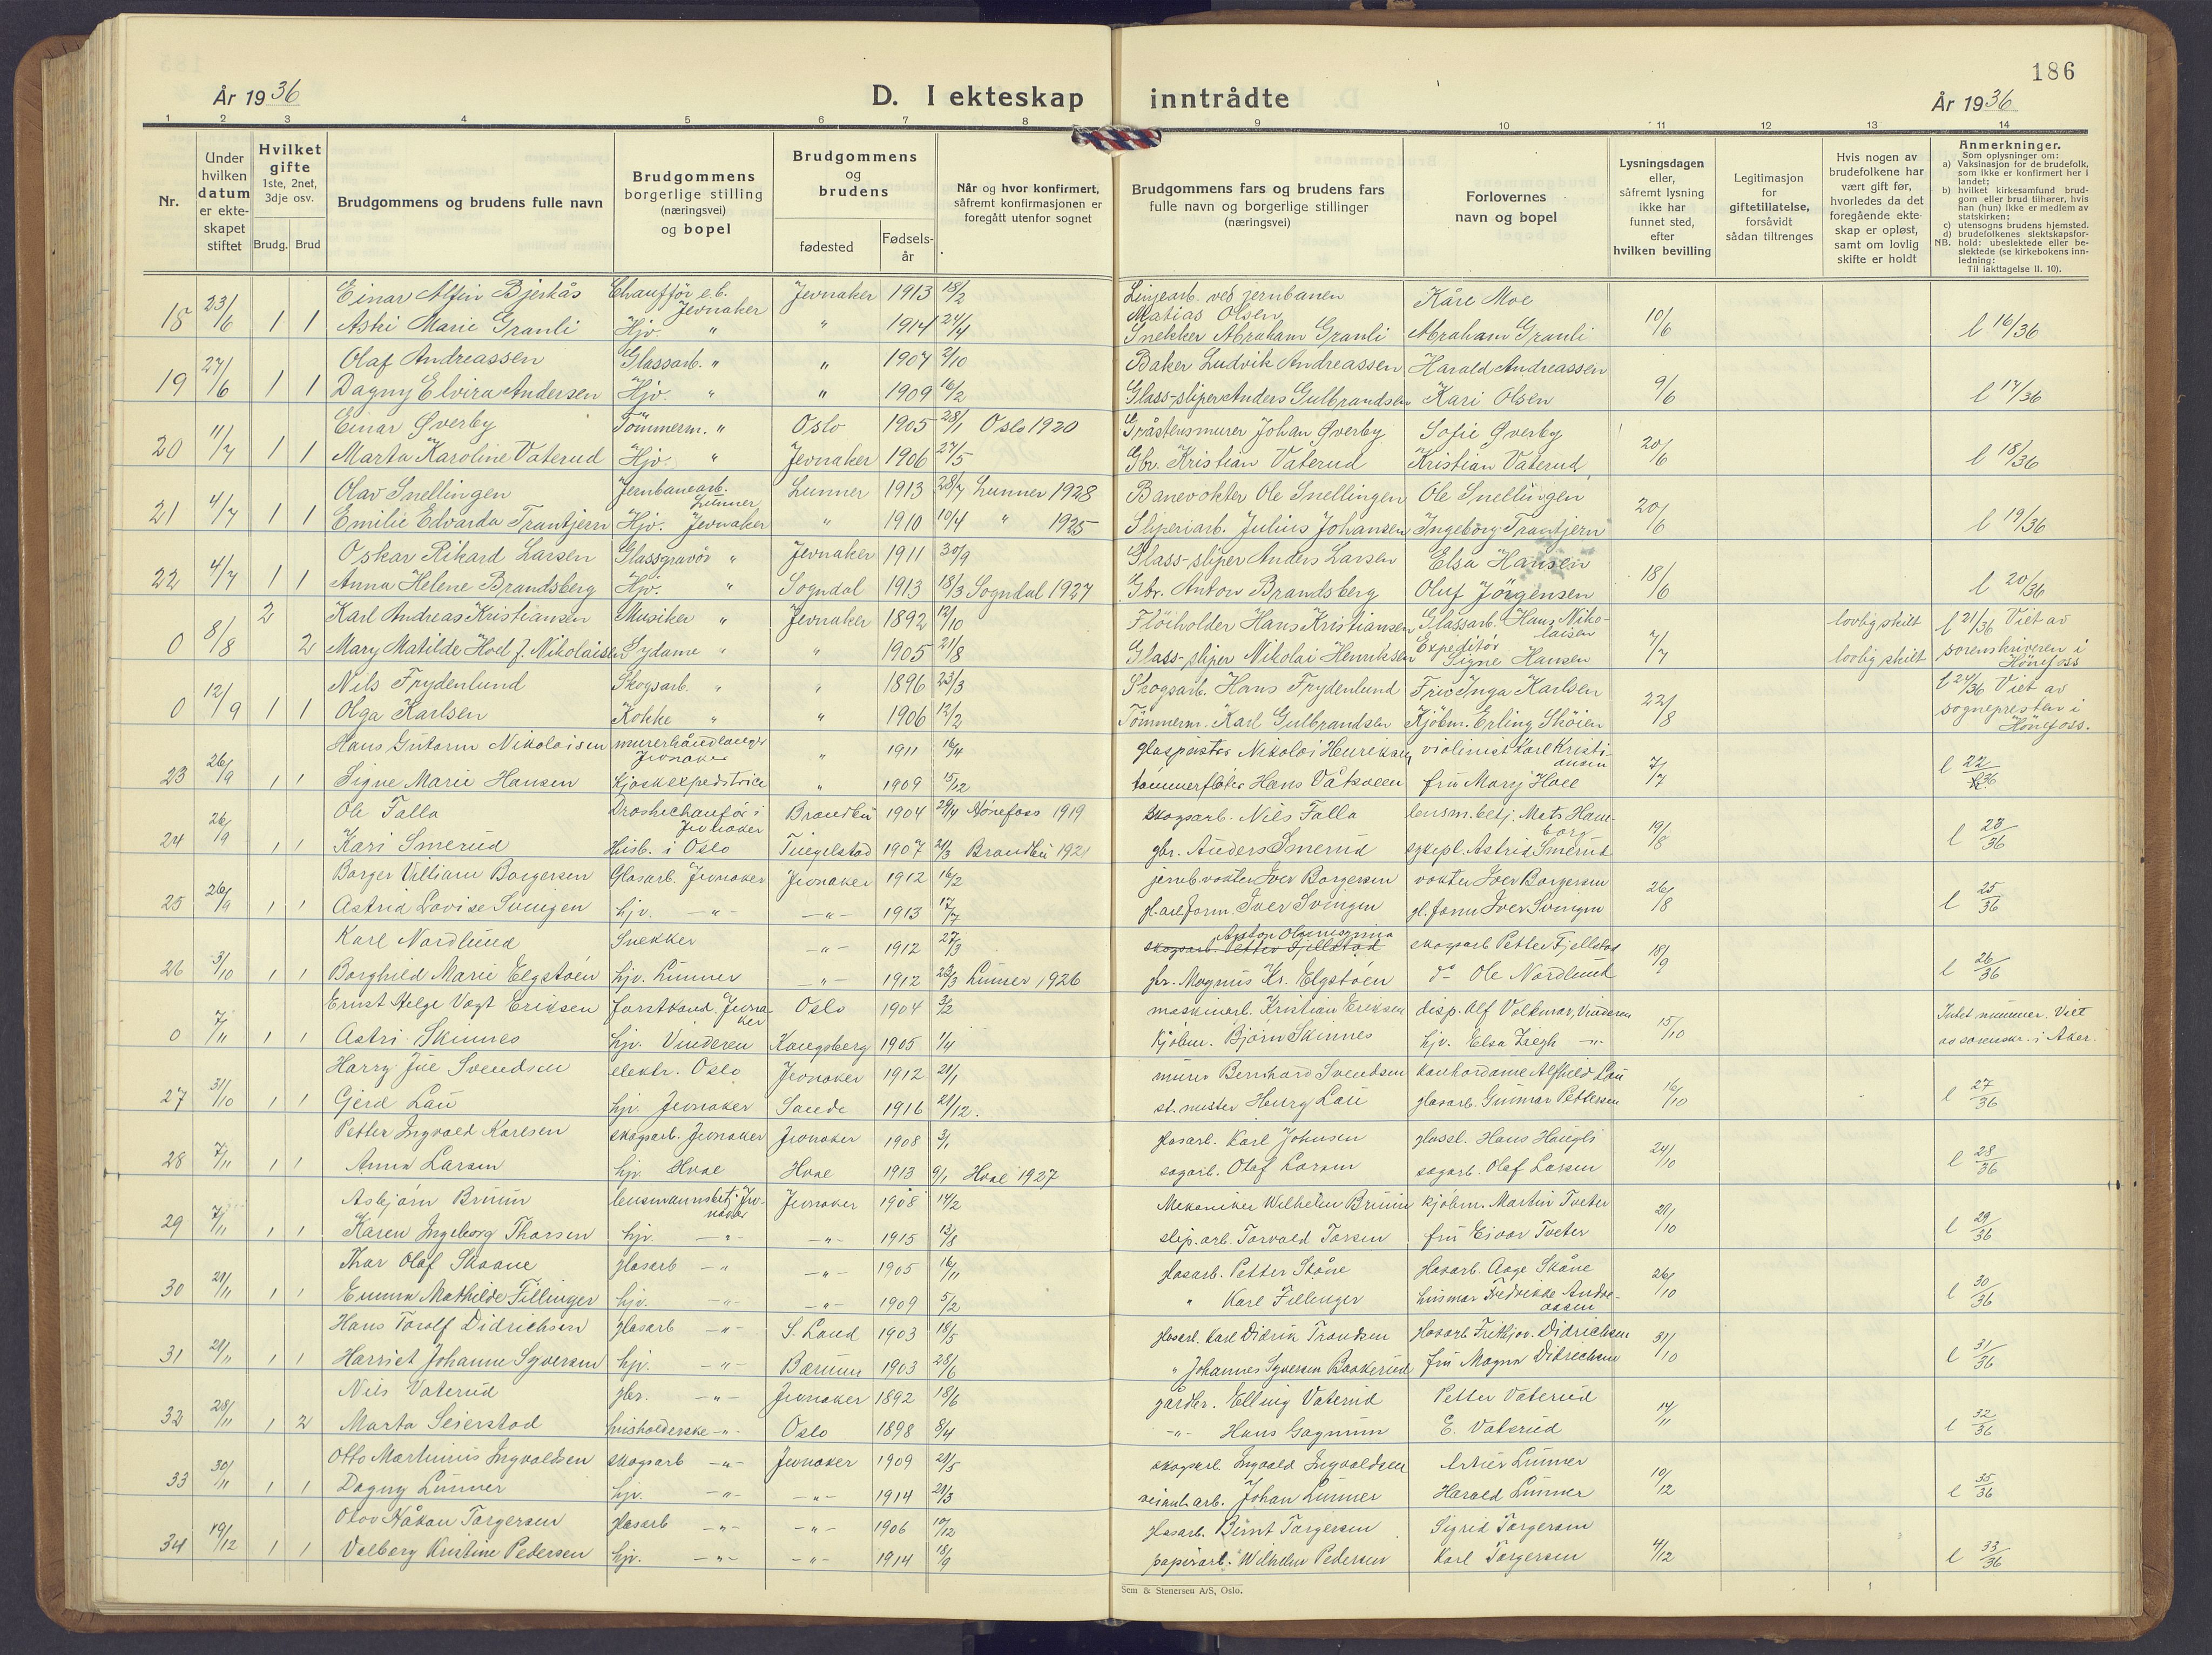 186
År 1936
D. I ekteskap inntrådte
År 1936
1 2 3 4 5 6 7 8 9 10 11 12 13 14
Nr.
Under hvilken datum er ekteskapet stiftet
Hvilket gifte 1ste, 2net, 3dje osv.
Brudg. Brud
Brudgommens og brudens fulle navn
Brudgommens borgerlige stilling (næringsvei) og bopel
Brudgommens og brudens
fødested
Fødselsår
Når og hvor konfirmert, såfremt konfirmasjonen er foregått utenfor sognet
Brudgommens fars og brudens fars fulle navn og borgerlige stillinger (næringsvei)
Forlovernes navn og bopel
Lysningsdagen eller, såfremt lysning ikke har funnet sted, efter hvilken bevilling
Legitimasjon for giftetillatelse, forsåvidt sådan tiltrenges
Hvis nogen av brudefolkene har vært gift før, hvorledes da det foregående ekteskap er opløst, samt om lovlig skifte er holdt
Anmerkninger.
Som oplysninger om:
a) Vaksinasjon for de brudefolk, som ikke er konfirmert her i landet;
b) hvilket kirkesamfund brudgom eller brud tilhører, hvis han (hun) ikke er medlem av statskirken;
c) utensogns brudens hjemsted.
d) brudefolkenes slektskapsforhold: ubeslektede eller beslektede (se kirkebokens innledning:
NB. Til iakttagelse II. 10).
Einar Alfin Bjerkås Chauffør e.b. Jevnaker Jevnaker 1913 18/2 Linjearb. ved jernbanen Matias Olsen Kåre Moe
18 23/6 1 1 Astri Marie Granli Hjv. " " 1914 24/4 Snekker Abraham Granli Abraham Granli 10/6 l 16/36
Olaf Andreassen Glassarb. " " 1907 2/10 Baker Ludvik Andreassen Harald Andreassen
19 27/6 1 1 Dagny Elvira Andersen Hjv. " " 1909 16/2 Glass-sliper Anders Gulbrandsen Kari Olsen 9/6 l 17/36
Einar Øverby Tømmerm. " Oslo 1905 28/1 Oslo 1920 Gråstensmurer Johan Øverby Sofie Øverby
20 11/7 1 1 Marta Karoline Vaterud Hjv. " Jevnaker 1906 27/5 Gbr. Kristian Vaterud Kristian Vaterud 20/6 l 18/36
Olav Snellingen Jernbanearb. Lunner Lunner 1913 28/7 Lunner 1928 Banevokter Ole Snellingen Ole Snellingen
21 4/7 1 1 Emilie Edvarda Trantjern Hjv. Jevnaker " 1910 10/4 " 1925 Sliperiarb. Julius Johansen Ingeborg Trantjern 20/6 l 19/36
Oskar Rikard Larsen Glassgravør " Jevnaker 1911 30/9 Glass-sliper Anders Larsen Elsa Hansen
22 4/7 1 1 Anna Helene Brandsberg Hjv. " Sogndal 1913 18/3 Sogndal 1927 Gbr. Anton Brandsberg Oluf Jörgensen 18/6 l 20/36
2 Karl Andreas Kristiansen Musiker " Jevnaker 1892 12/10 Flöiholder Hans Kristiansen Glassarb. Hans Nikolaisen lovlig skilt l 21/36 Viet av
0 8/8 2 Mary Matilde Hoel f. Nikolaisen Sydame " " 1905 21/8 Glass-sliper Nikolai Henriksen Expeditör Signe Hansen 7/7 lovlig skilt sorenskriveren i Hönefoss
Nils Frydenlund Skogsarb. " " 1896 23/3 Skogsarb. Hans Frydenlund Frw Inga Karlsen l 24/36 Viet av
0 12/9 1 1 Olga Karlsen Kokke " " 1906 12/2 Tömmerm. Karl Gulbrandsen Kjöbm. Erling Sköien 22/8 sognepresten i Hönefoss.
Hans Gutorm Nikolaisen murerhåndlanger Jevnaker " 1911 16/4 Nikolai Henriksen violinist Karl Kristiansen
23 26/9 1 1 Signe Marie Hansen Kjoskexpeditrice " 1909 15/12 tømmerfløter Hans fru Mary Hoel 7/7 l 22/36
Ole Falla Droskechauffør i Jevnaker Brandbu 1904 29/4 Hønefoss 1919 Skogsarb. Nils Falla lensm.betj. Mats
24 26/9 1 1 Kari Smerud Husb. i Oslo Tingelstad 1907 21/3 Brandbu 1921 gbr. Anders Smerud sykepl. Astrid Smerud 19/8 l 23/36
Borger Villiam Borgersen Glasarb. Jevnaker Jevnaker 1912 16/2 jernb.vokter Iver Borgersen vokter Iver Borgersen
25 26/9 1 1 Astrid Lovise Svingen hjv. -"- -"- 1913 17/7 Iver Svingen Iver Svingen 26/8 l 25/36
Karl Nordlund Snekker -"- 1912 27/3 skogsarb. Petter Fjellstad skogsarb Petter Fjellstad
26 3/10 1 1 Borghild Marie Elgstøen hjv. Lunner -"- 1912 23/3 Lunner 1926 gbr. Magnus Kr. Elgstøen do Ole Nordlund 18/9 l 26/36
Ernst Helge Vogt Eriksen forstkand. Jevnaker Oslo 1904 3/2 maskinarb. Kristian Eriksen disp. Alf Volkmar, Vinderen Intet nummer. Viet
0 7/11 1 1 Astri Skinnes hjv. Vinderen Kongsberg 1905 1/4 Kjøbm. Bjørn Skinnes hjv. Elsa -"- 15/10 av sorenskr. i Aker.
Harry Svendsen elektr. Oslo Jevnaker 1912 21/1 murer Bernhard Svendsen kontordame Alfhild Lau
27 31/10 1 1 Gerd Lau hjv. Jevnaker Sande 1916 21/12. st. mester Lau glasarb. Gunnar Pettersen 16/10 l 27/36
Petter Ingvald Karlsen skogsarb. Jevnaker Jevnaker 1908 3/1 glasarb. Karl Johnsen Hans Haugli
28 7/11 1 1 Anna Larsen hjv. Hole Hole 1913 9/1 Hole 1927 sagarb. Olaf Larsen sagarb. Olaf Larsen 24/10 l 28/36
Asbjørn Bruun lensmannsbetj. Jevnaker Jevnaker 1908 14/2 Mekaniker Wilhelm Bruun kjøbm. Martin Tveter
29 7/11 1 1 Karen Ingeborg Thorsen hjv. -"- -"- 1915 13/8 slip.arb. Torvald Torsen fru Eivor Tveter 21/10 l 29/36
Thor Olaf Skaane glasarb -"- -"- 1905 16/11 glasarb. Petter Skåne glasarb. Aage Skåne
30 21/11 1 1 Emma Mathilde Fillinger hjv. -"- -"- 1909 5/2 " Karl Fillinger husmor Fredrikke Andreassen 26/10 l 30/36
Hans Torolf Didrichsen glasarb -"- S. Land 1903 18/5 glasarb. Karl Didrik Trondsen glasarb. Frithjov. Didrichsen
31 21/11 1 1 Harriet Johanne Syversen hjv. -"- Bærum 1903 28/6 " Johannes Syversen fru Magna Didrechsen 31/10 l 31/36
Nils Vaterud gbr. -"- Jevnaker 1892 18/6 gårdbr. Elling Vaterud Petter Vaterud
32 28/11 1 2 Marta Seierstad husholderske -"- Oslo 1898 8/4 -"- Hans Gagnum E. Vaterud 14/11 l 32/36
Otto Martinius Ingvaldsen skogsarb -"- Jevnaker 1909 21/5 skogsarb. Ingvald Ingvaldsen Lunner
33 30/11 1 1 Dagny Lunner hjv. -"- -"- 1914 21/3 Johan Lunner Harald Lunner 10/12 l 35/36
Olav Håkon Torgersen glasarb -"- -"- 1906 10/12 glasarb. Bernt Torgersen Sigrid Torgersen
34 19/12 1 1 Valborg Kristine Pedersen hjv. -"- -"- 1914 18/9 papirarb. Wilhelm Pedersen Karl Torgersen 4/12 l 33/36
Sem & Stenersen A/S, Oslo.